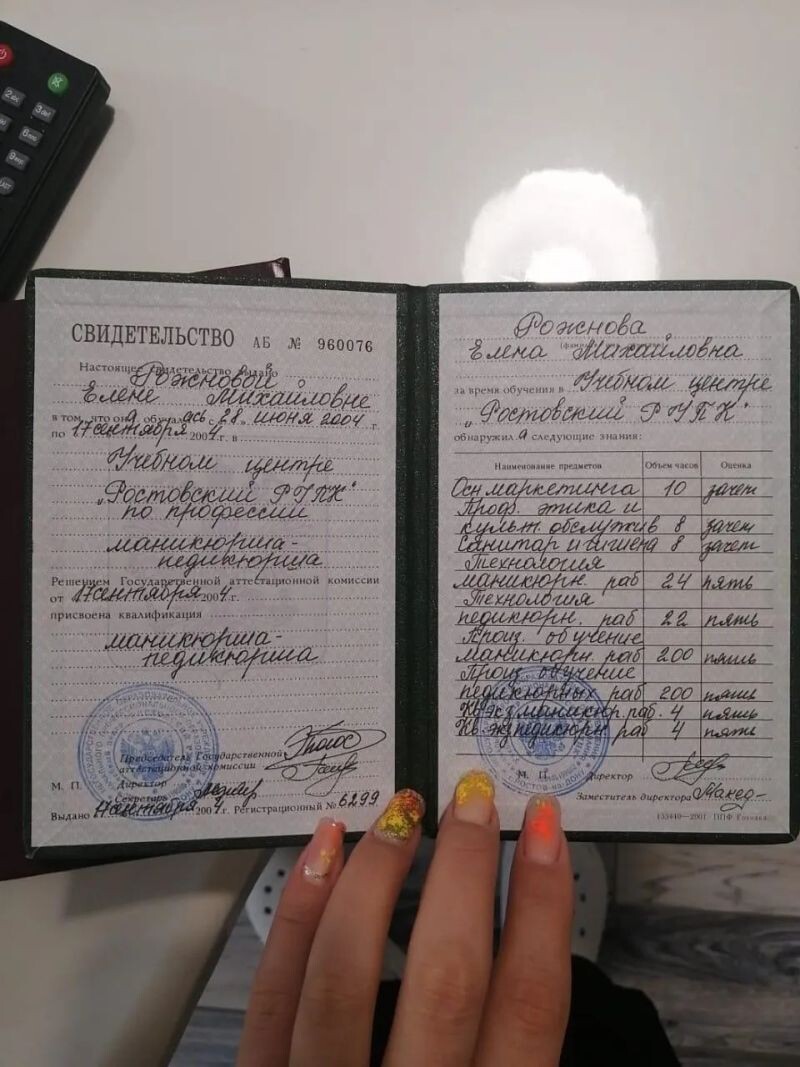 СВИДЕТЕЛЬСТВО АБ № 960076
Настоящее свидетельство выдано
Рожновой
Елене Михайловне
в том, что она обучалась с „28„ июня 2004 г.
по 17 сентября 2004 г. в
Учебном центре
„Ростовский РУПК"
по профессии
маникюрша-
педикюрша
Решением Государственной аттестационной комиссии
от 17 сентября 2004 г.
присвоена квалификация
маникюрша-
педикюрша
Председатель Государственной
аттестационной комиссии
М. П. Директор
Секретарь
Выдано 17 сентября 2004 г. Регистрационный № 6299
Рожнова
Елена Михайловна
за время обучения в Учебном центре
„Ростовский РУПК"
обнаружила следующие знания:
Наименование предметов Объем часов Оценка
Осн маркетинга 10 зачет
Проф. этика и
культ. обслужив 8 зачет
Санитар и гигиена 8 зачет
Технология
маникюрн. раб 24 пять
Технология
педикюрн. раб 22 пять
Произ. обучение
маникюрн. раб 200 пять
Произ. обучение
педикюрных раб 200 пять
Кв. экз маникюр. раб. 4 пять
Кв. экз педикюрн раб 4 пять
М. П. Директор
Заместитель директора
2ав
3де
6мно
9wxy